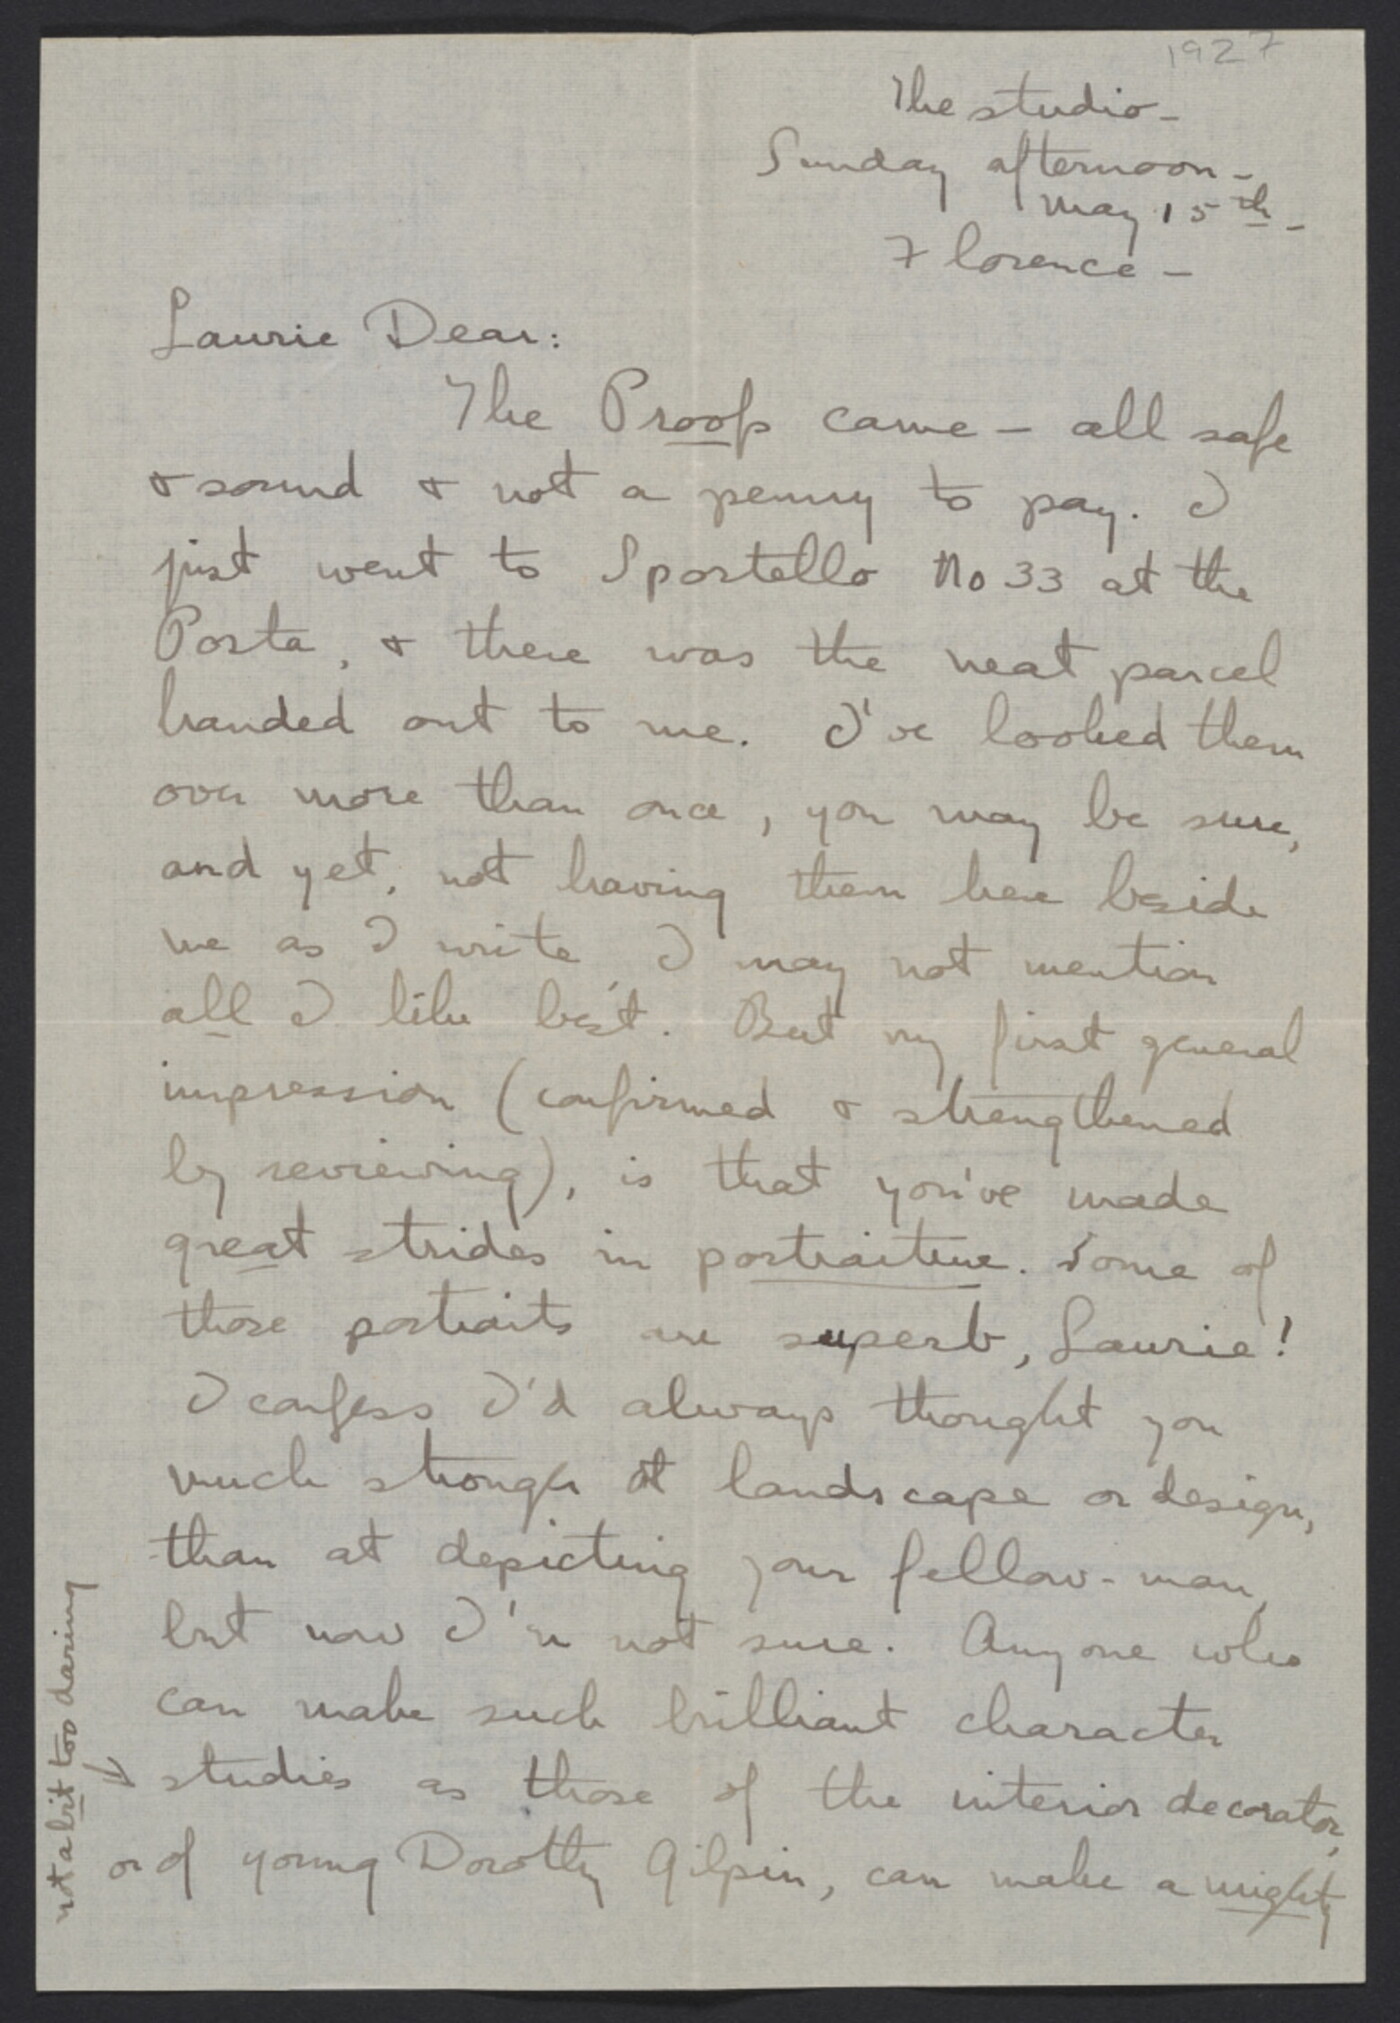 1927
The studio -
Sunday afternoon -
May 15th -
Florence -
Laurie Dear:
The Proofs came - all safe
& sound & not a penny to pay. I
just went to Sportello No 33 at the
Posta, & there was the neat parcel
handed out to me. I've looked them
over more than once, you may be sure,
and yet, not having them here beside
me as I write, I may not mention
all I like best. But my first general
impression (confirmed & strengthened
by reviewing), is that you've made
great strides in portraiture. Some of
those portraits are superb, Laurie!
I confess I'd always thought you
much stronger at landscape or design,
than at depicting your fellow-man,
but now I'm not sure. Anyone who
can make such brilliant character
studies as those of the interior decorator,
or of young Dorothy Gilpin, can make a mighty
not a bit too daring